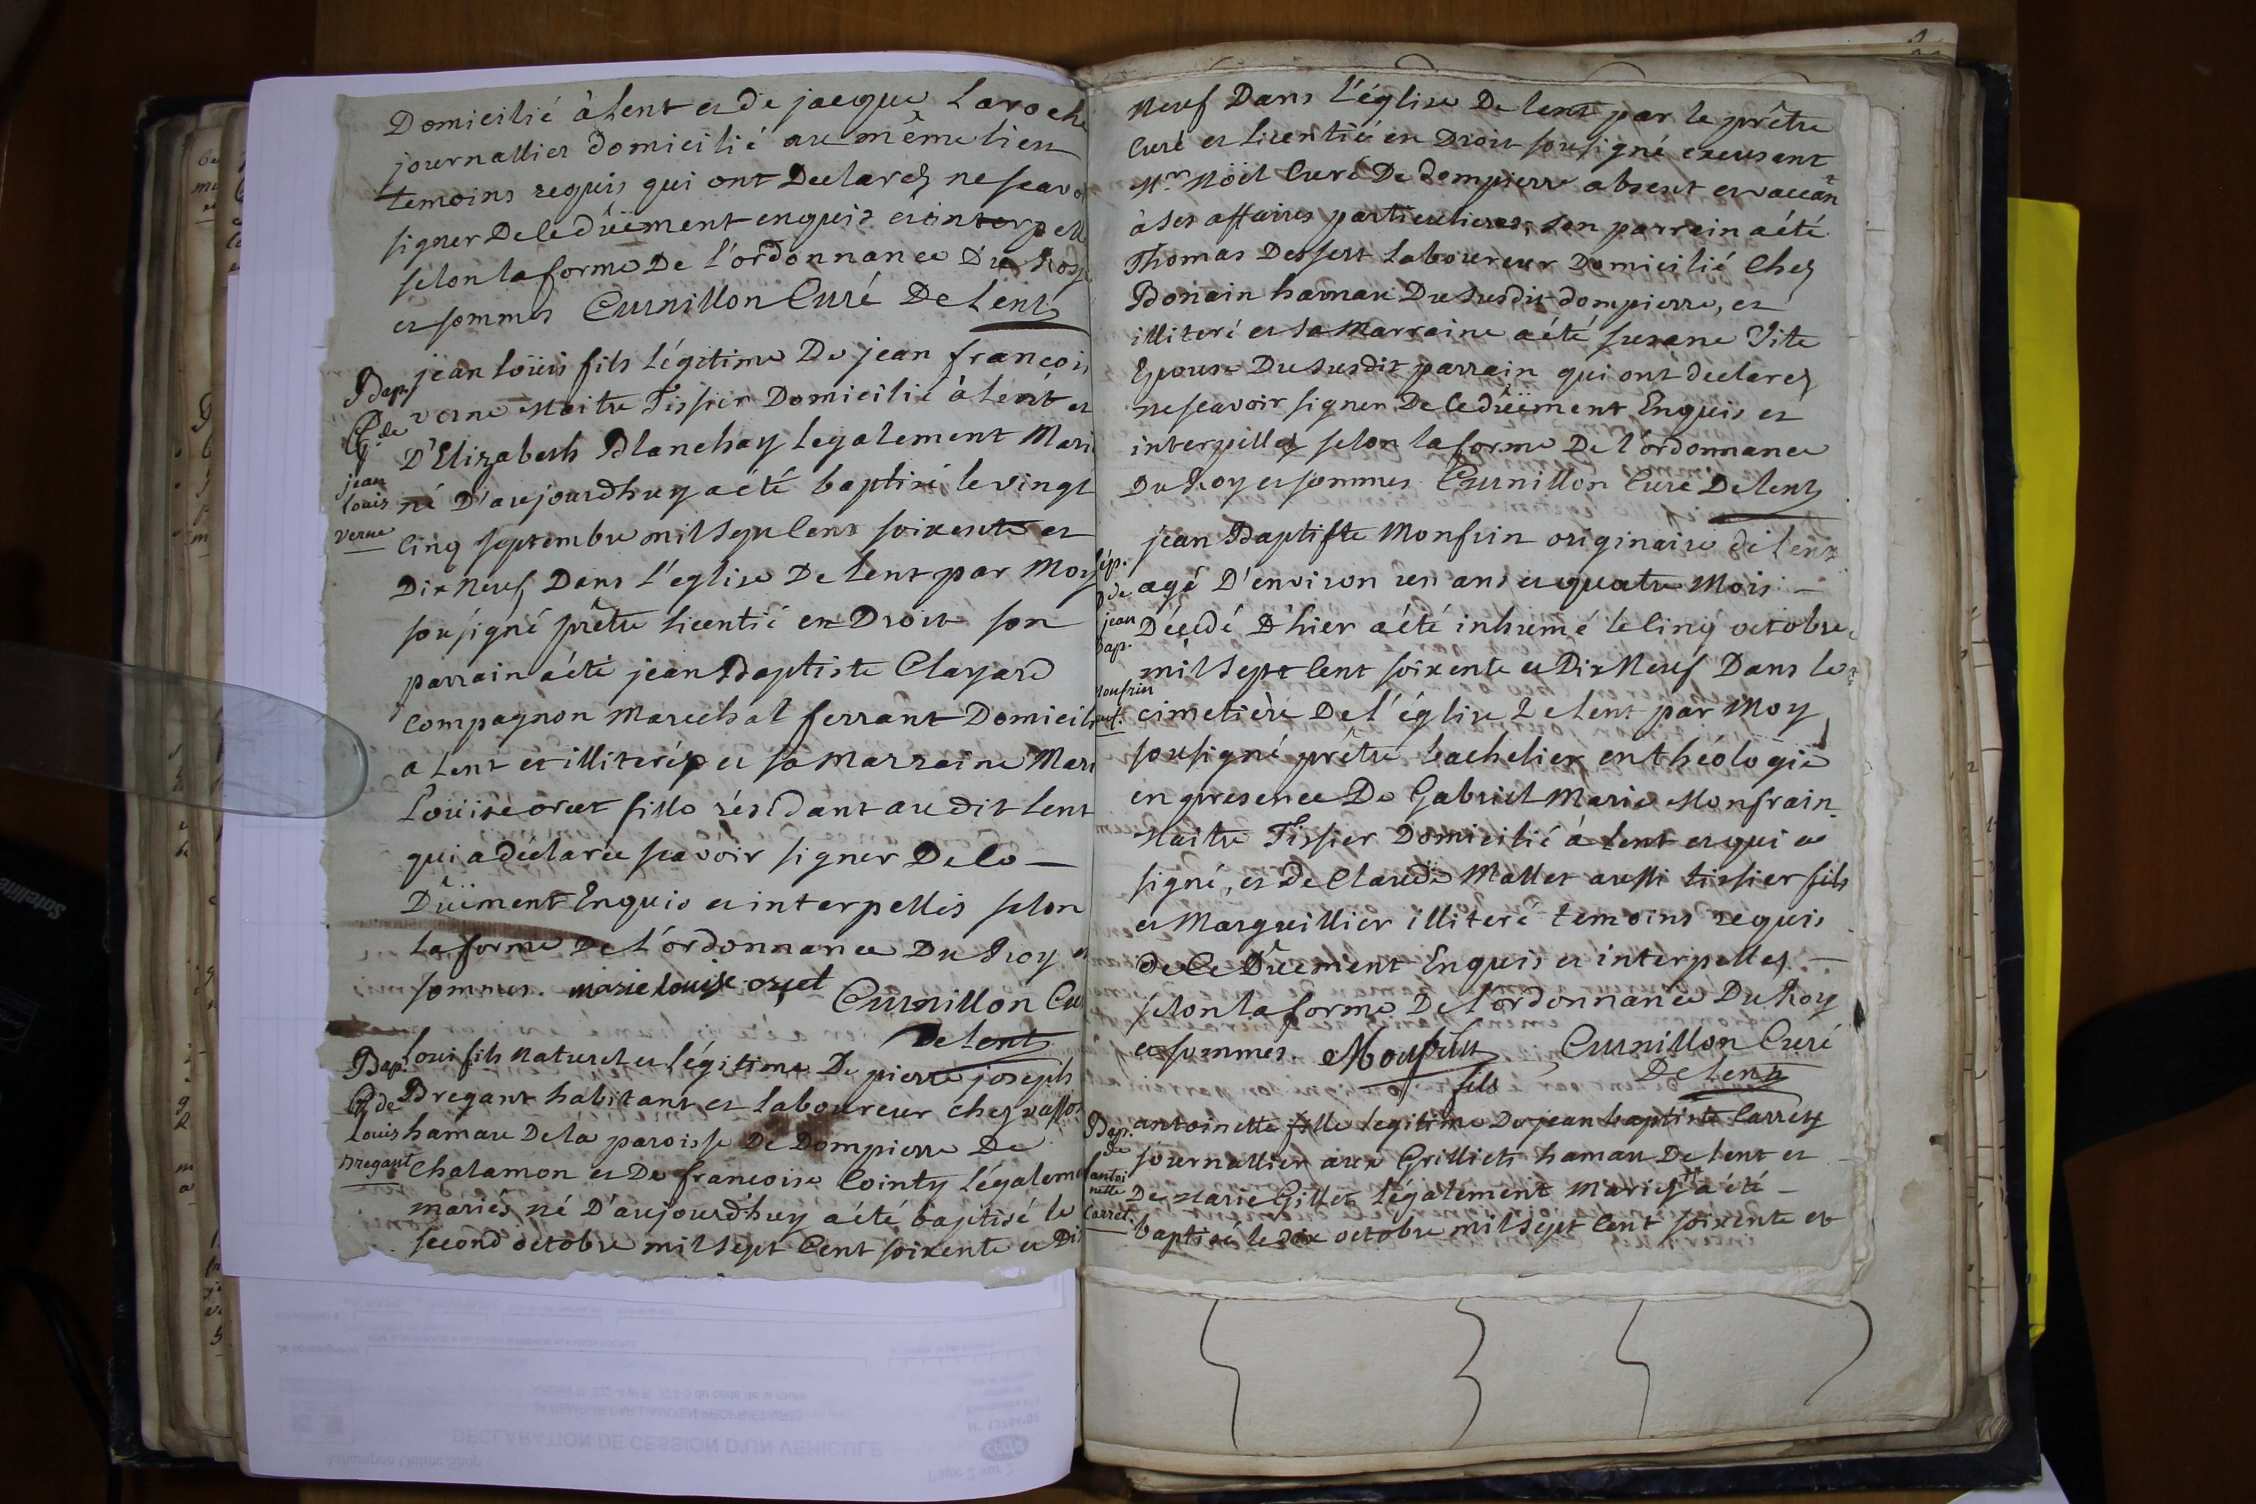 Domicilié à lent et de jacque Laroche
journallier domicilié au même lieu
temoins requis qui ont Declarez ne scavo
signer De ce dûëment enquis et interpell
selon la forme De l'ordonnance Du Roy
et sommes Curnillon Curé De Lent
jean loüis fils légitime De jean françois
Bap.
verne Maitre Tissier Domicilié à lent et
de
D'Elizabeth Blanchay legalement Mari
jean
louis
verne
né D'aujourdhuy a été baptisé le vingt
Cinq septembre mil sept Cent soixente et
Dix Neuf, Dans l'eglise De lent par Moy
sousigné prêtre licentié en Droit son
parrain a été jean Baptiste Clayard
Compagnon Marechal ferrant Domicil
a lent et illiteré, et sa marraine Mari
Loüise oret fille résidant au dit lent
qui a déclarée scavoir signer De Ce
Dûëment Enquis et interpellés selon
la forme De l'ordonnance Du Roy et
sommes. marie louise oret Curnillon Cu
De lent
Bap.
de
Louis
Bregant
Loui fils naturel et légitime De pierre joseph
Bregant habitant et laboureur chez
hamau De la paroisse De Dompierre De
Chalamon et De francoise Cointy légaleme
mariés né D'aujourd'huy a été baptisé le
second octobre mil sept Cent soixente et Di
Neuf Dans l'église De lent par le prêtre
Curé et licentié en Droit sousigné excusent
Mr. Nöel Curé De dompierre absent et vaccan
à ses affaires particulieres, son parrain a été
Thomas Dessert laboureur Domicilié Chez
Bonain hamau Du susdit dompierre, et
illiteré et sa Marraine a été susane Tite
Epouse Du susdit parrain qui ont declarez
ne scavoir signer De ce dûëment Enquis et
interpellez selon la forme De l'ordonnance
Du Roy et sommes Curnillon Curé De lent
jean Baptiste Monfrin originaire de lent
ép.
de
jean
Bap.
Monfrin
agé D'environ un ans et quatre Mois
Décedé D'hier a été inhumé le Cinq octobre
mil sept Cent soixente et Dix Neuf Dans le
cimetière De l'église De lent par Moy
sousigné prêtre bachelier en théologie
en presence De Gabriel Marie Monfrain
Maitre Tissier Domicilié à lent et qui a
signé, et De Claude Mallet aussi tissier fils
et Marguillier illiteré temoins requis
de Ce Dûement Enquis et interpellez
selon la forme De l'ordonnance Du Roy
et sommes. Monfrin Curnillon Curé
fils De lent
Bap.
de
antoi
nette
Carret.
antoinette fille legitime De jean baptiste Carret
journallier aux Grilliets hamau De lent et
De Marie Gillet légalement Mariez a été
baptisé le dix octobre mil sept Cent soixente et
DECLARATION DE CESSION D'UN VEHICULE
Satellite